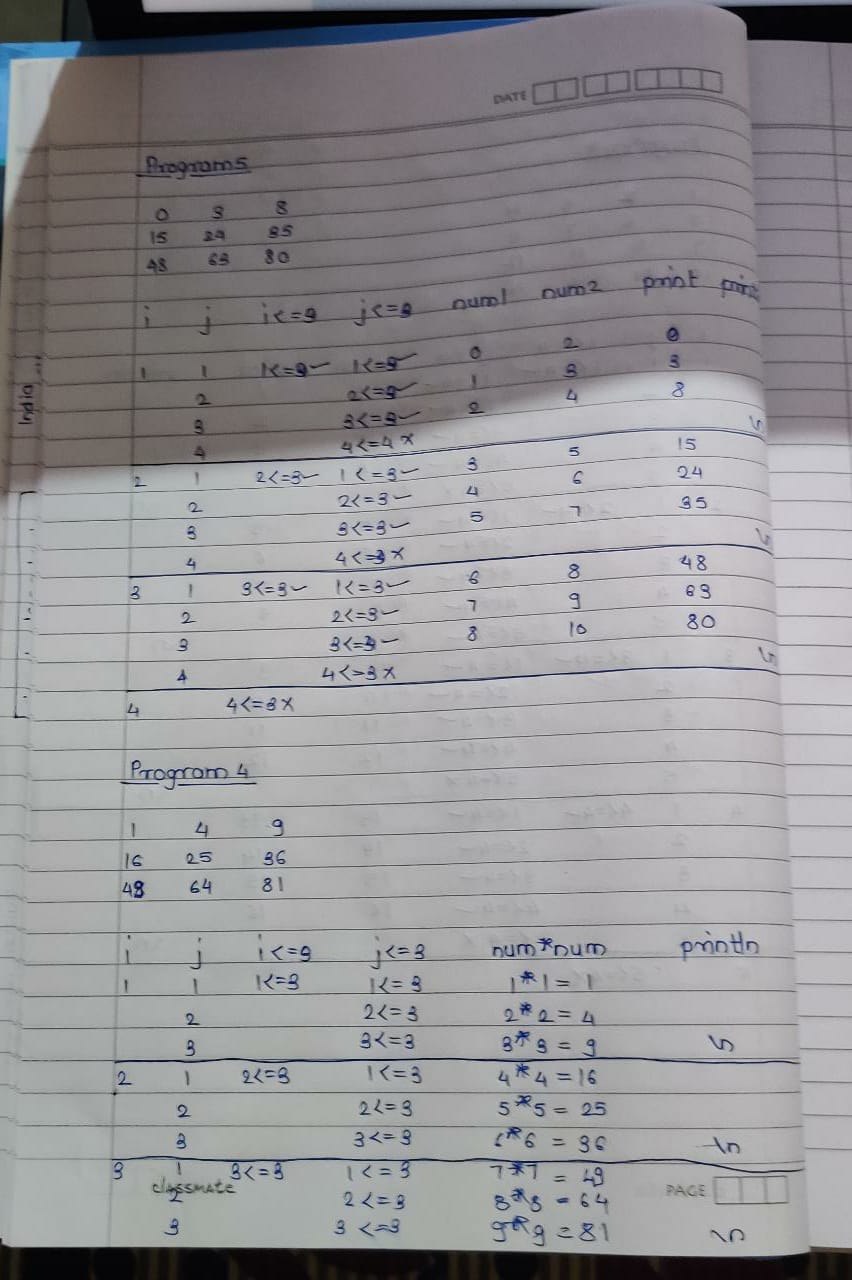 DATE
Program 5
0 3 8
15 24 35
48 63 80
i j i<=3 j<=3 num1 num2 print
1 1 1<=3✓ 1<=3✓ 0 2 0
2 2<=3✓ 1 3 3
3 3<=3✓ 2 4 8
4 4<=4 x \n
2 1 2<=3✓ 1<=3✓ 3 5 15
2 2<=3✓ 4 6 24
3 3<=3✓ 5 7 35
4 4<=3 x \n
3 1 3<=3✓ 1<=3✓ 6 8 48
2 2<=3✓ 7 9 63
3 3<=3✓ 8 10 80
4 4<=3 x \n
4 4<=3 x
Program 4
1 4 9
16 25 36
48 64 81
i j i<=3 j<=3 num*num println
1 1 1<=3 1<=3 1*1 = 1
2 2<=3 2*2 = 4
3 3<=3 3*3 = 9 \n
2 1 2<=3 1<=3 4*4 = 16
2 2<=3 5*5 = 25
3 3<=3 6*6 = 36 \n
3 1 3<=3 1<=3 7*7 = 49
classmate PAGE
2 2<=3 8*8 = 64
3 3<=3 9*9 = 81 \n
India